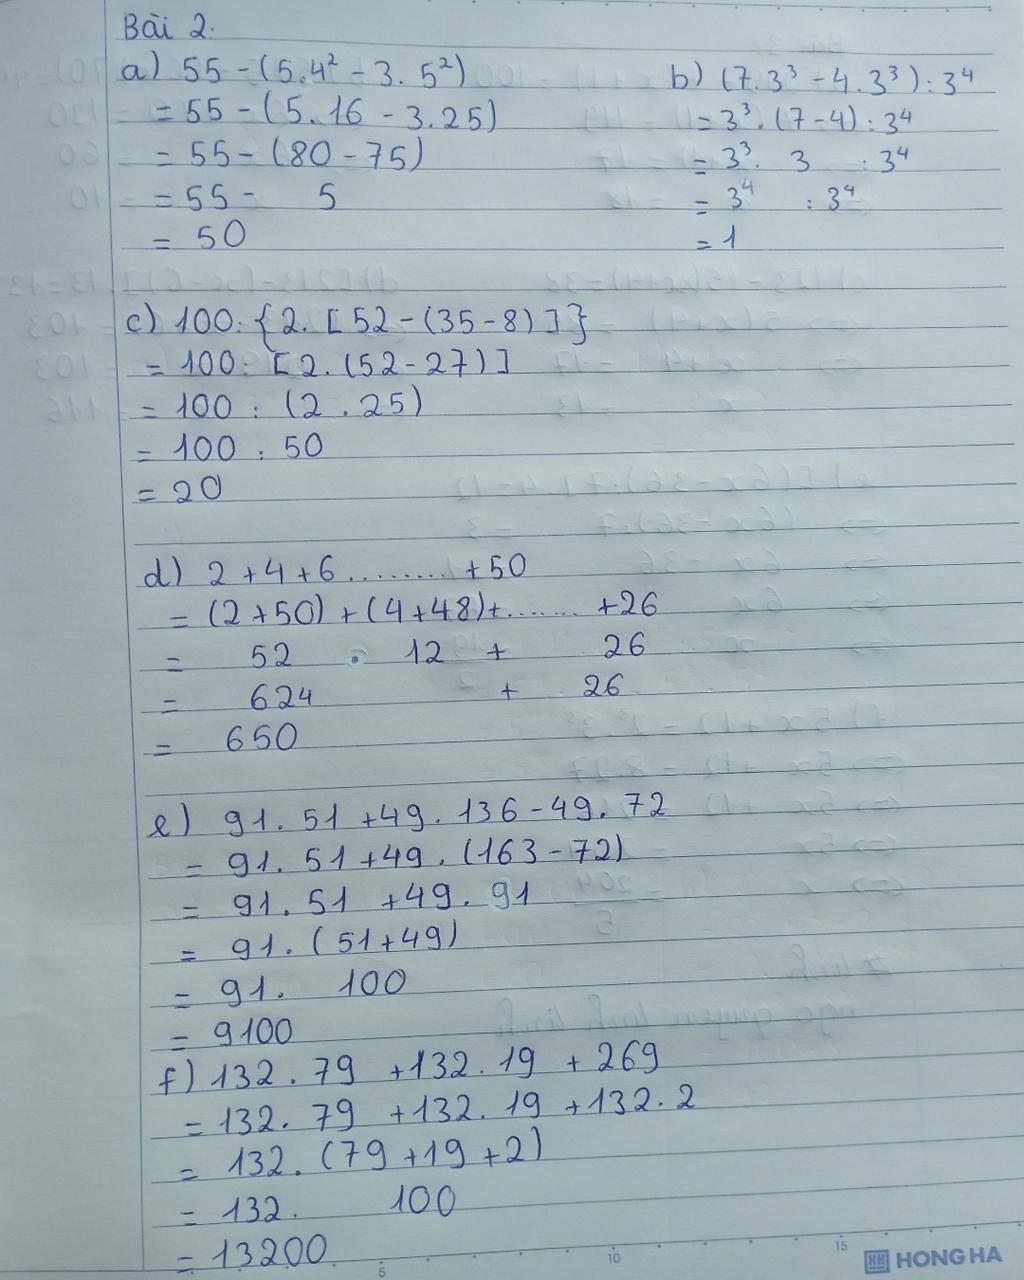 Bài 2.
a) 55 - (5.4² - 3. 5²)
= 55 - (5.16 - 3.25)
= 55 - (80 - 75)
= 55 - 5
= 50
b) (7.3³ - 4.3³) : 3⁴
= 3³ . (7-4) : 3⁴
= 3³. 3 : 3⁴
= 3⁴ : 3⁴
= 1
c) 100: {2. [52 - (35 - 8)]}
= 100: [2. (52 - 27)]
= 100 : (2 . 25)
= 100 : 50
= 20
d) 2 + 4 + 6 ......... + 50
= (2+50) + (4+48)+....... +26
= 52 . 12 + 26
= 624 + 26
= 650
e) 91. 51 + 49. 136 - 49. 72
= 91. 51 + 49. (163 - 72)
= 91. 51 + 49. 91
= 91. (51 + 49)
= 91. 100
= 9100
f) 132. 79 + 132. 19 + 269
= 132. 79 + 132. 19 + 132. 2
= 132. (79 + 19 + 2)
= 132. 100
= 13200
5 10 15
HH HONG HA